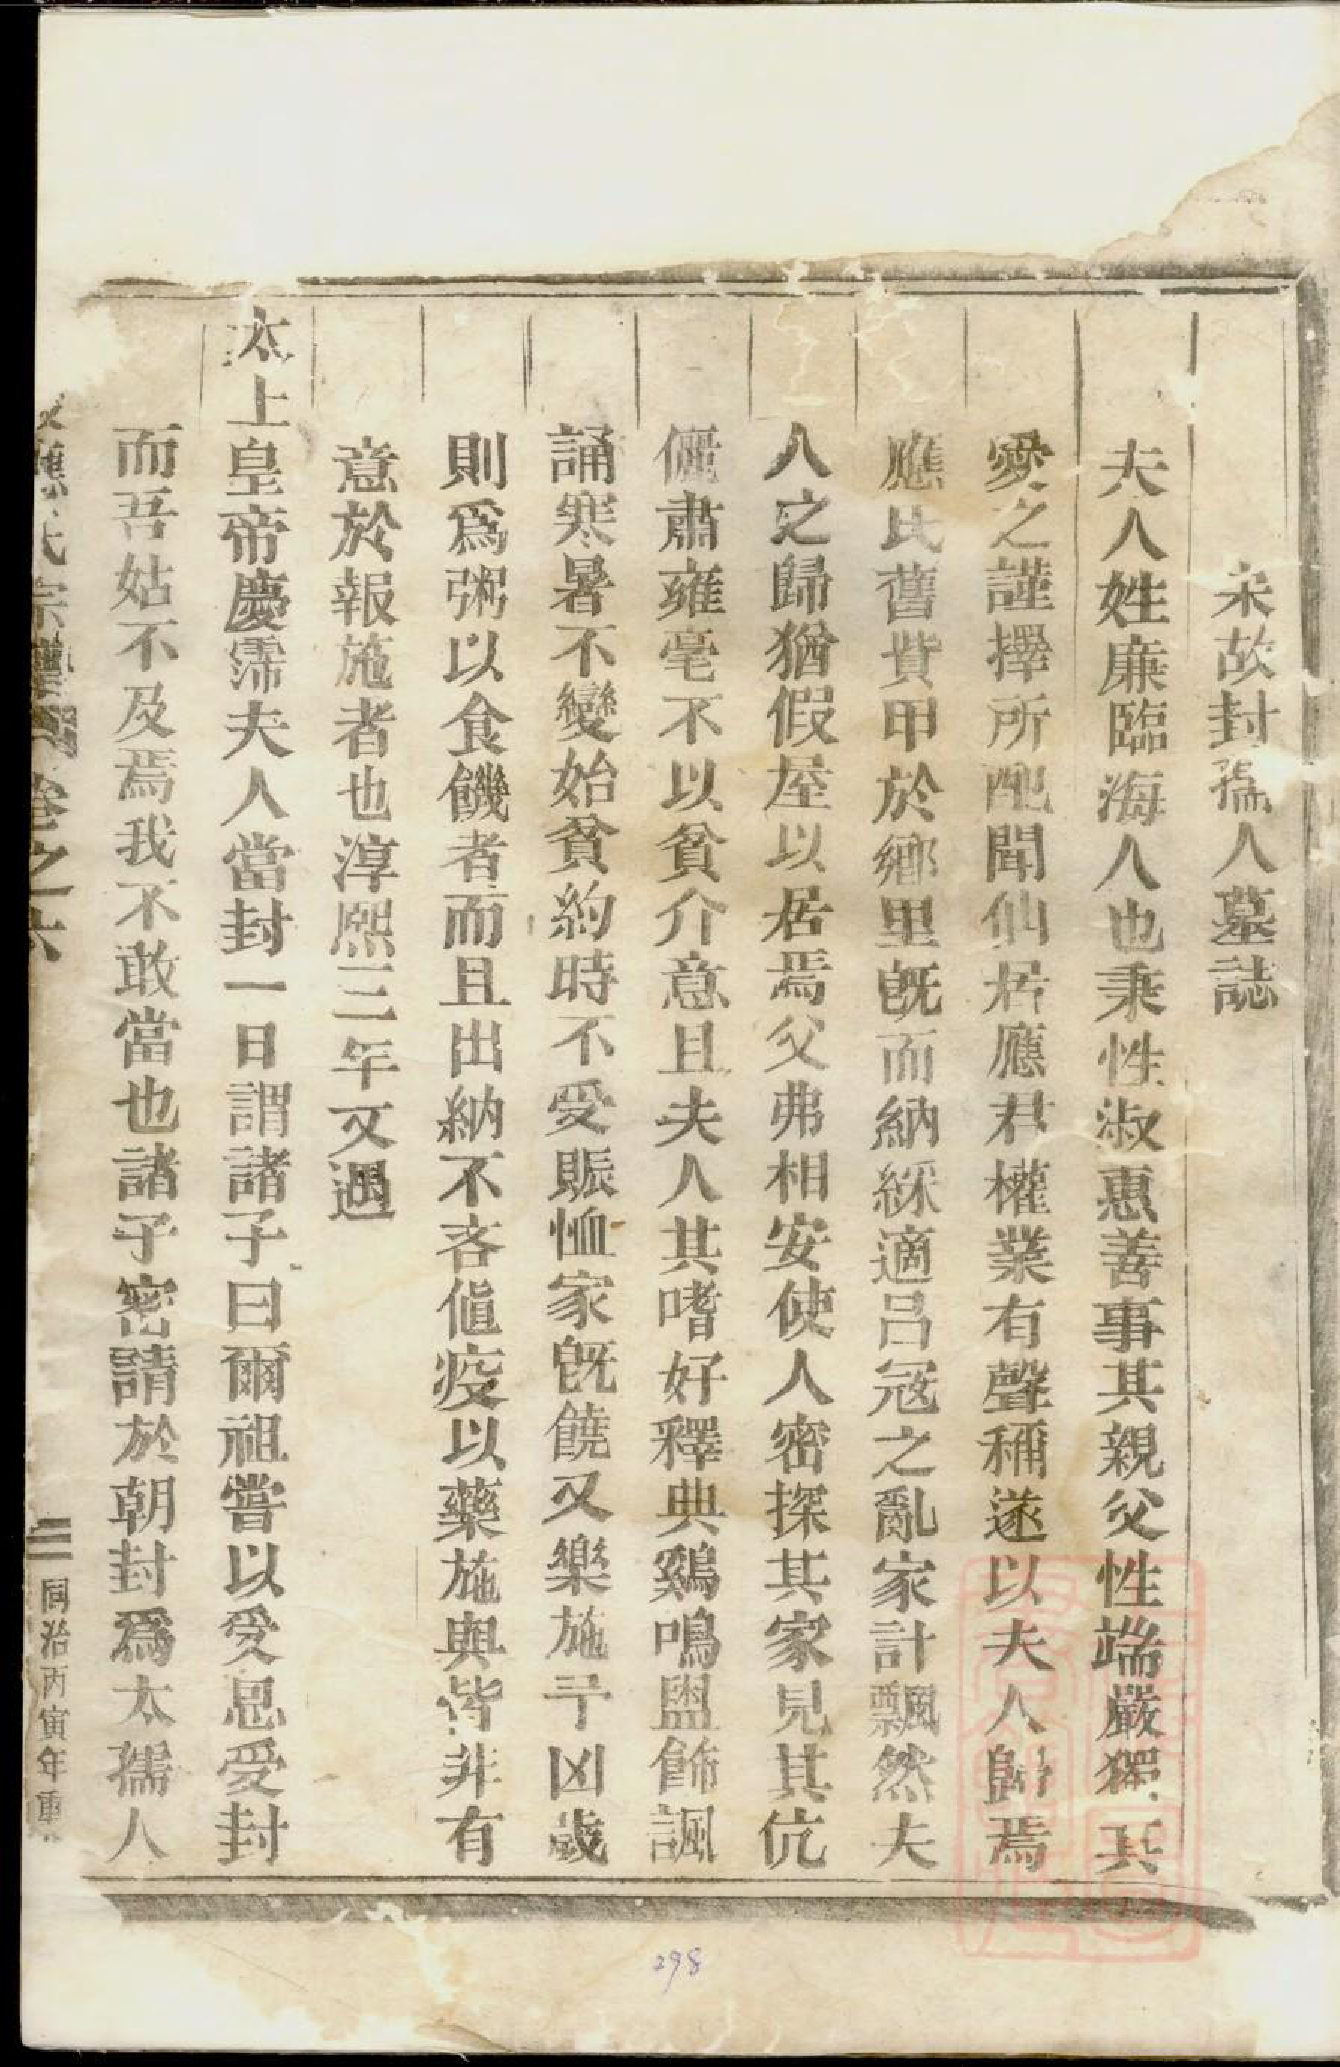 宋故封孺人墓誌
夫人姓廉臨海人也秉性淑惠善事其親父性端嚴獨其
愛之謹擇所配聞仙居應君權業有聲稱遂以夫人歸焉
應氏舊貲甲於鄉里旣而納綵適呂冦之亂家計飄然夫
人之歸猶假屋以居焉父弗相安使人密探其家見其伉
儷肅雍毫不以貧介意且夫人其嗜好釋典鷄鳴盥飾諷
誦寒暑不變始貧約時不受賑恤家旣饒又樂施予凶歲
則爲粥以食饑者而且出納不吝値疫以藥施與皆非有
意於報施者也淳熙三年又遇
太上皇帝慶霈夫人當封一日謂諸子曰爾祖嘗以受恩受封
而吾姑不及焉我不敢當也諸子密請於朝封爲太孺人
應氏宗譜 卷之六 三 同治丙寅年重
298